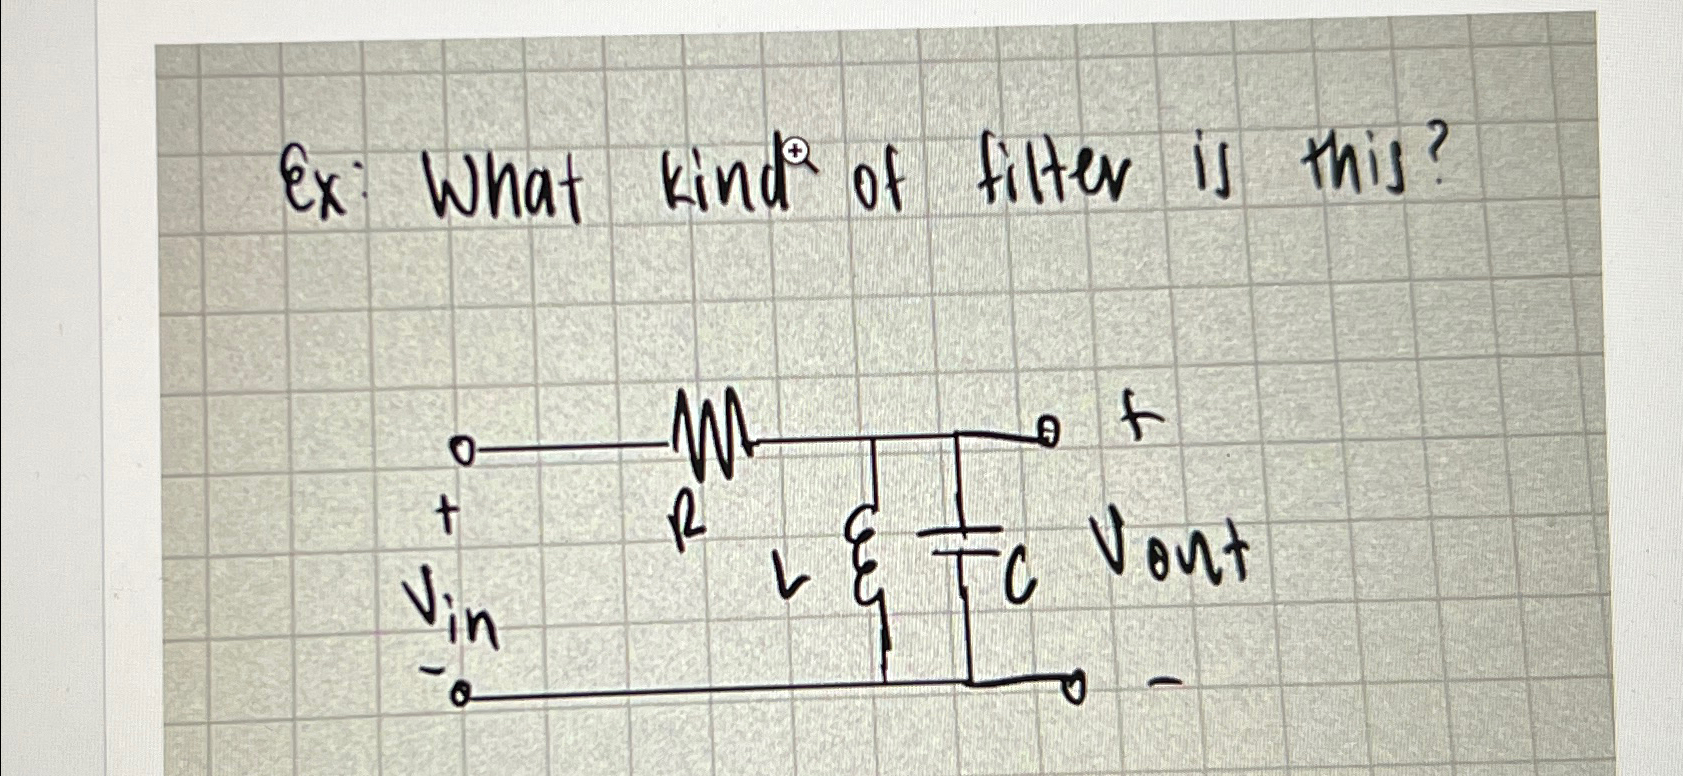 Ex: What kind of filter is this?
+
R
+
L
C
Vout
Vin
-
-